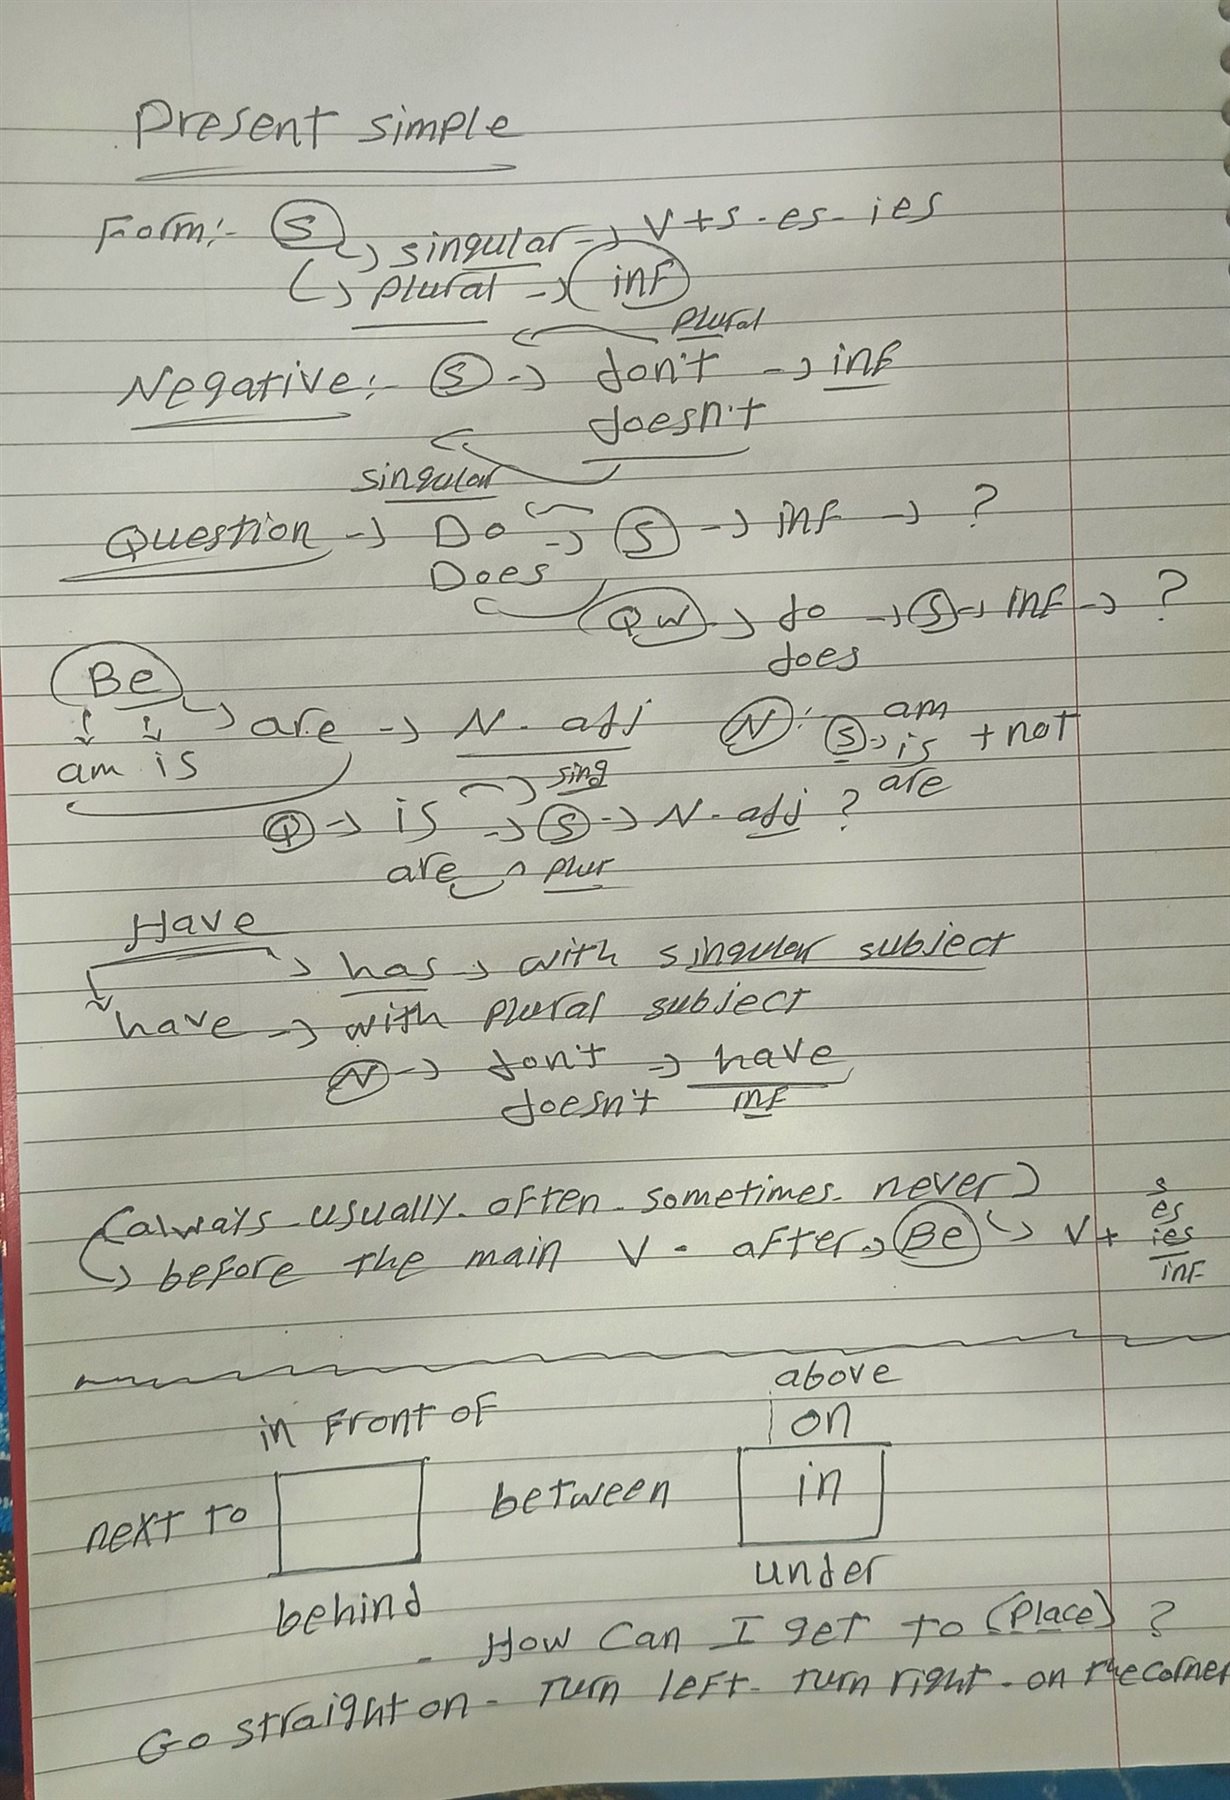 Present simple
Form:- S → singular → V + s - es - ies
→ plural → inf
plural
Negative:- S → don't → inf
doesn't
singular
Question → Do → S → inf → ?
Does
QW → do → S → inf → ?
does
Be
am is → are → N - adj
N: S → am is are + not
sing
Q → is → S → N - adj ?
are plur
Have
→ has → with singular subject
have → with plural subject
N → don't → have
doesn't inf
(always - usually - often - sometimes - never)
→ before the main V - after → Be → V + s es ies inf
above
in front of on
next to between in
behind under
- How can I get to (place) ?
Go straight on - Turn left - turn right - on the corner